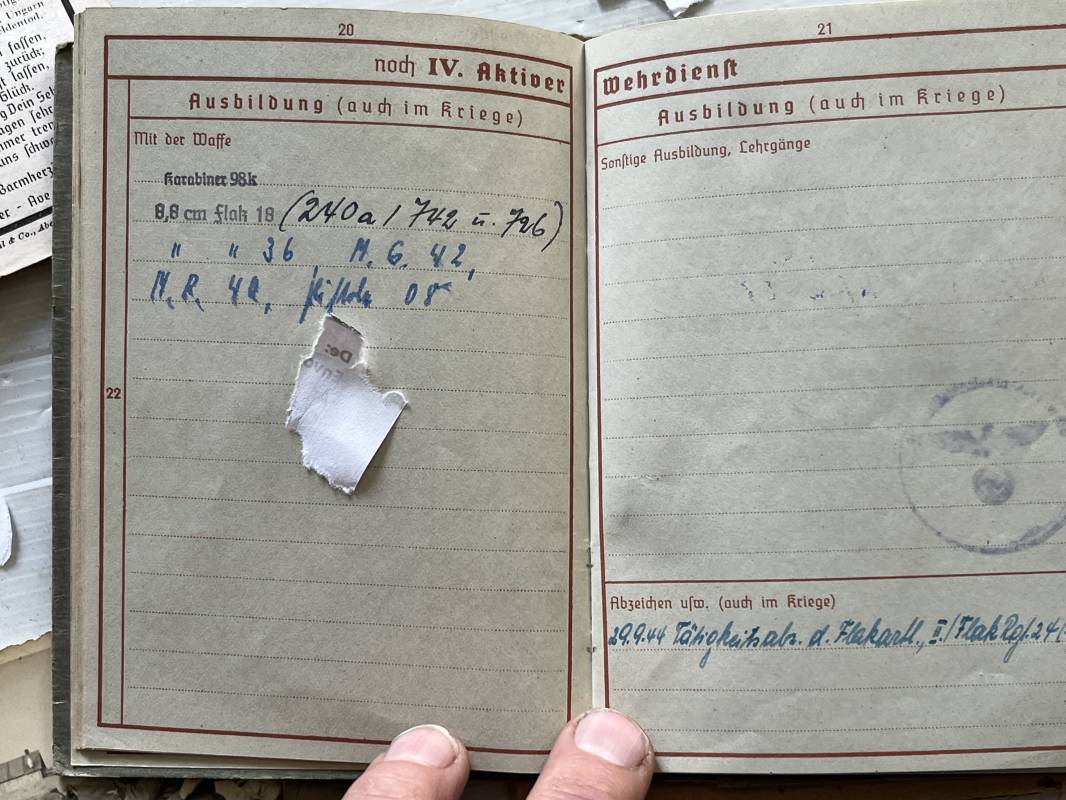 Ungarn
fassen,
zurück;
lassen,
Glück.
Dein
uns
20
noch IV. Aktiver
Ausbildung (auch im Kriege)
Mit der Waffe
Karabiner 98k
8,8 cm Flak 18 (240a / 742 u. 726)
" " 36 M. G. 42,
Pistole 08
De:
22
21
Wehrdienst
Ausbildung (auch im Kriege)
Sonstige Ausbildung, Lehrgänge
Abzeichen usw. (auch im Kriege)
29.9.44 Tätigkeitsabz. d. Flakartl., II./Flak Rgt. 241